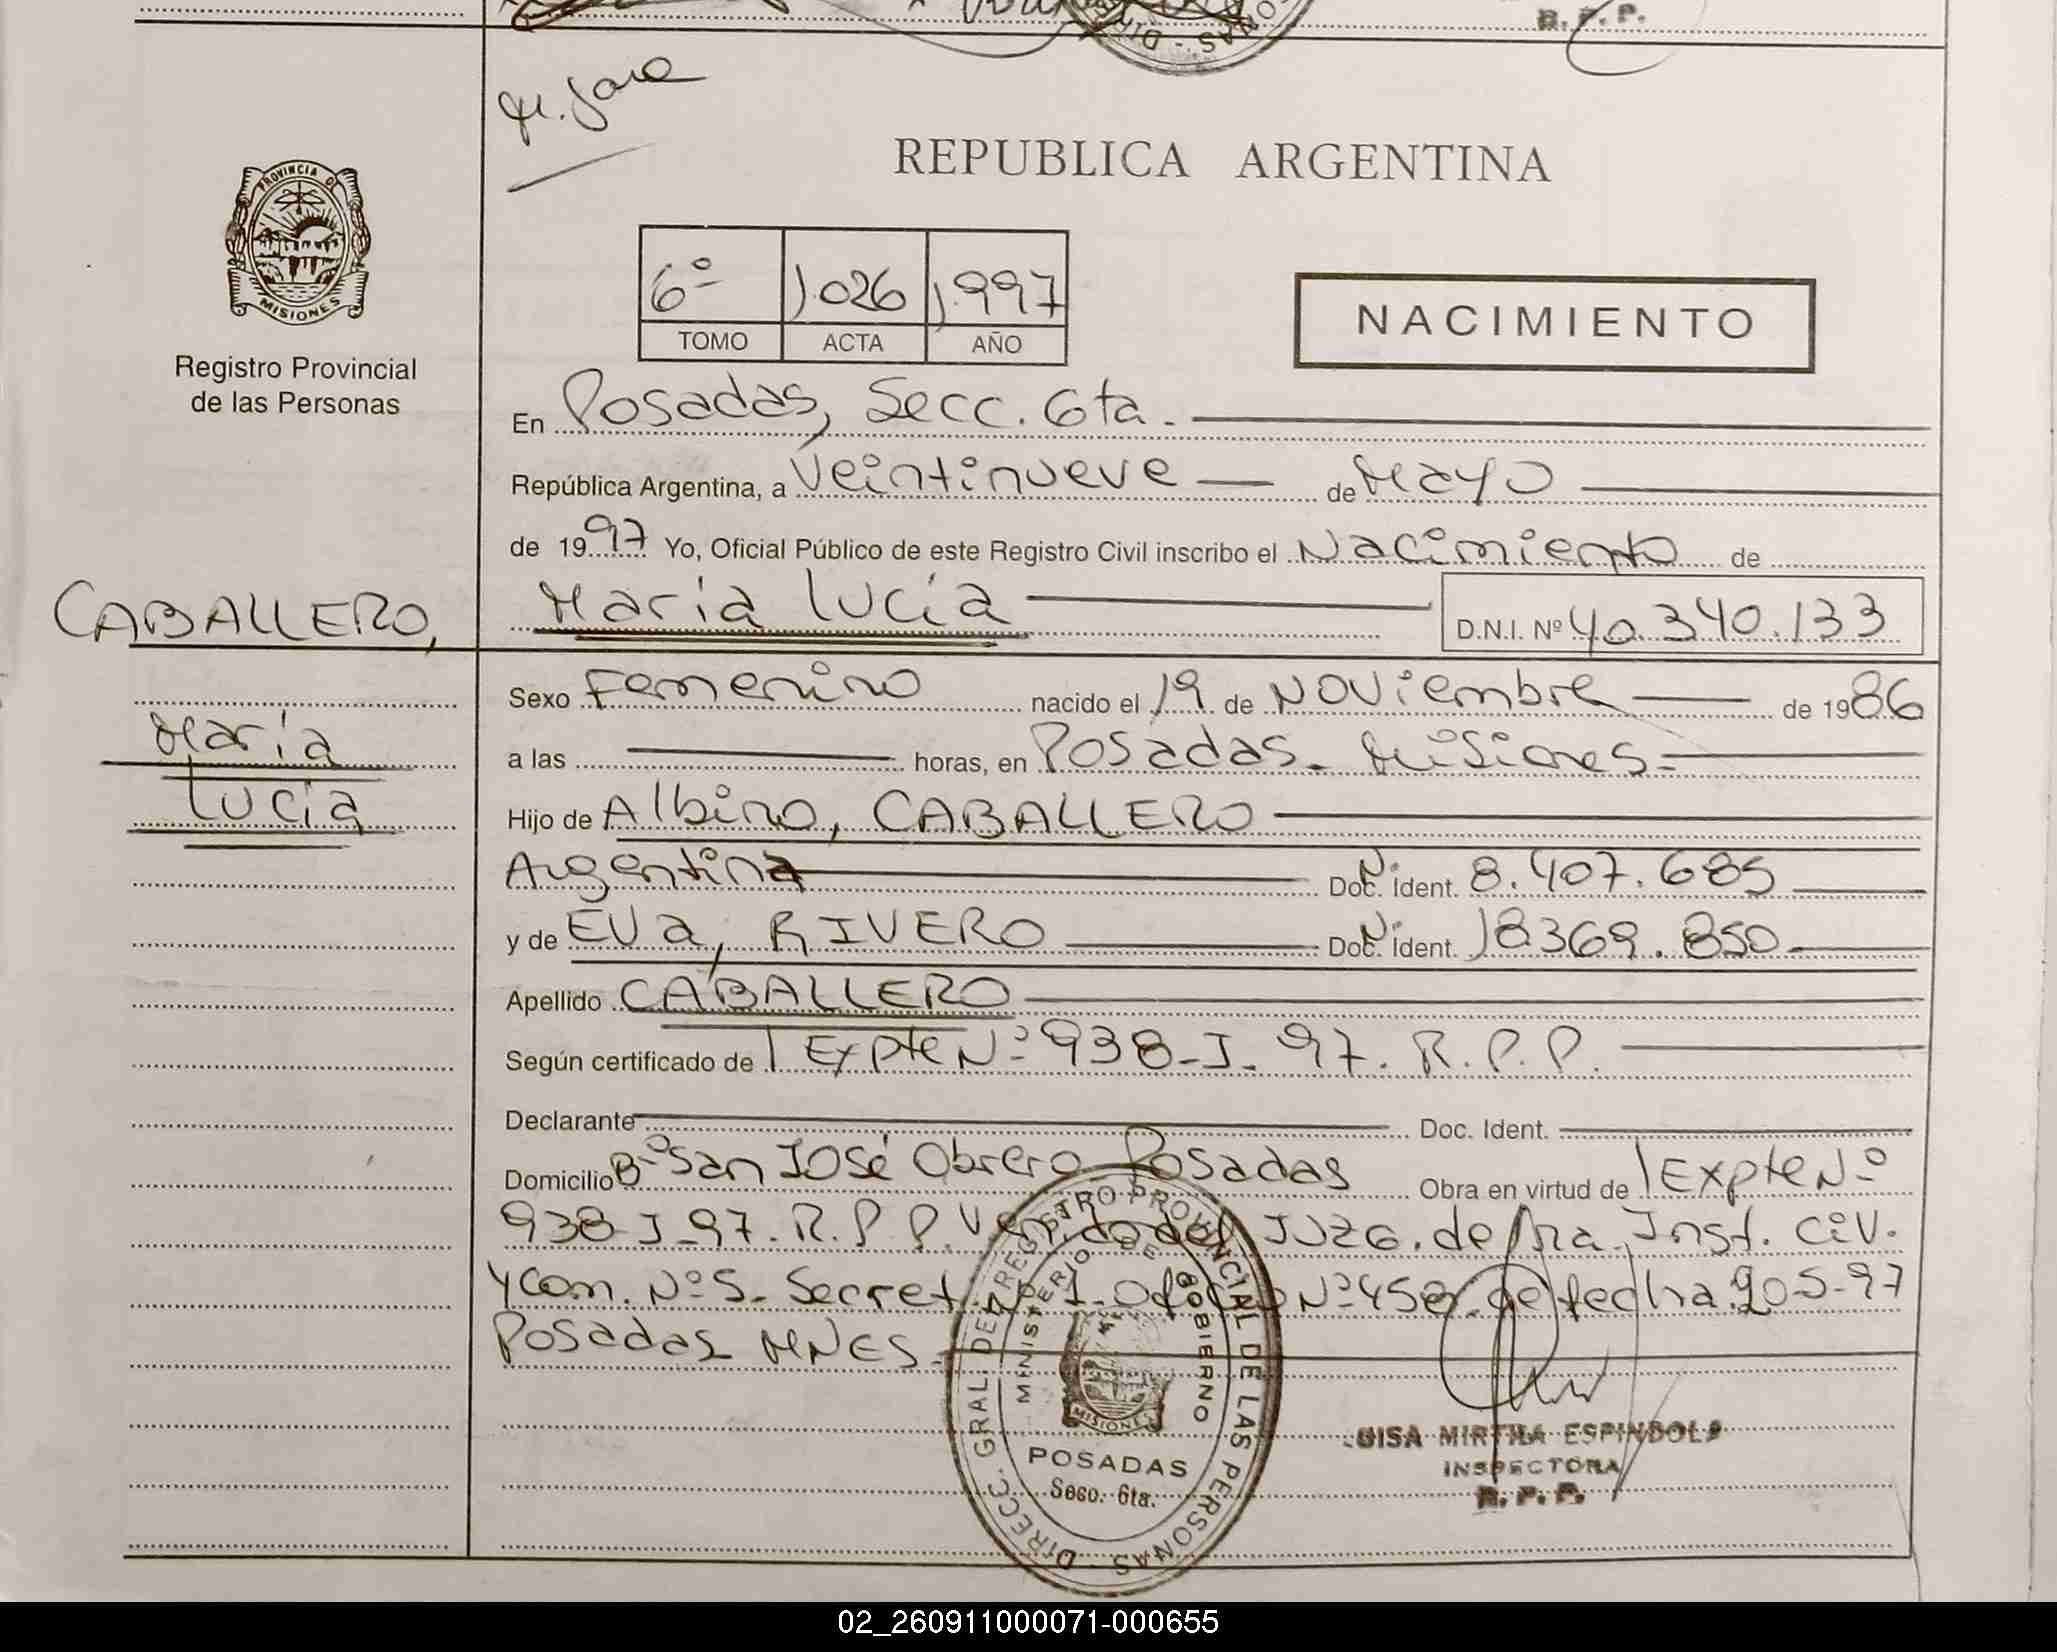 R. P. P.
REPUBLICA ARGENTINA
PROVINCIA DE
MISIONES
Registro Provincial
de las Personas
6º 1.026 1.997
TOMO ACTA AÑO
NACIMIENTO
En Posadas, Secc. 6ta.
República Argentina, a Veintinueve de Mayo
de 1997 Yo, Oficial Público de este Registro Civil inscribo el Nacimiento de
CABALLERO, María Lucía D.N.I. Nº 40.340.133
María
Lucía
Sexo Femenino nacido el 19 de Noviembre de 1986
a las horas, en Posadas. Misiones.
Hijo de Albino, CABALLERO
Argentina Doc. Ident. 8.407.685
y de Eva, RIVERO Doc. Ident. 18369.850
Apellido CABALLERO
Según certificado de Expte Nº 938-J-97. R.P.P.
Declarante Doc. Ident.
Domicilio Bº San José Obrero Posadas Obra en virtud de Expte Nº
938-J-97. R.P.P. Venido del Juzg. de 1ra Inst. Civ.
y Com. Nº 5. Secret. Nº 1. Oficio Nº 458 de fecha 20-5-97
Posadas MNES.
DIRECC. GRAL DEL REGISTRO PROVINCIAL DE LAS PERSONAS
MINISTERIO DE GOBIERNO
MISIONES
POSADAS
Secc. 6ta.
LUISA MIRTHA ESPINDOLA
INSPECTORA
R. P. P.
02_260911000071-000655